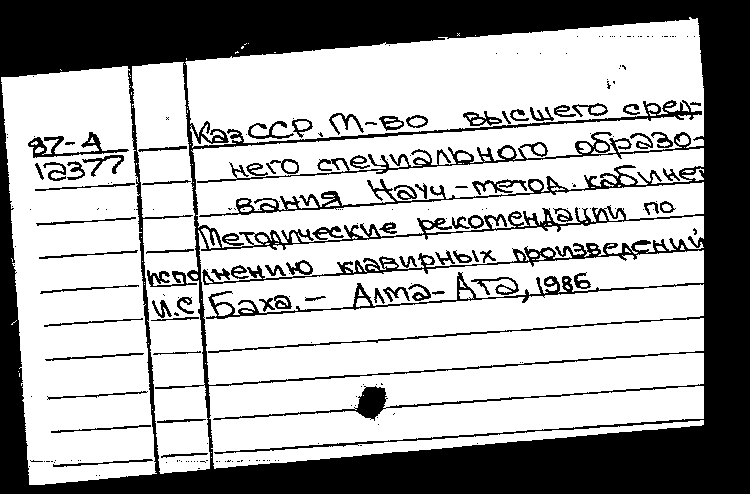 87-А
12377
КазССР. М-во высшего сред-
него специального образо-
вания Науч.-метод. кабинет
Методические рекомендации по
исполнению клавирных произведений
И.С. Баха. — Алма-Ата, 1986.